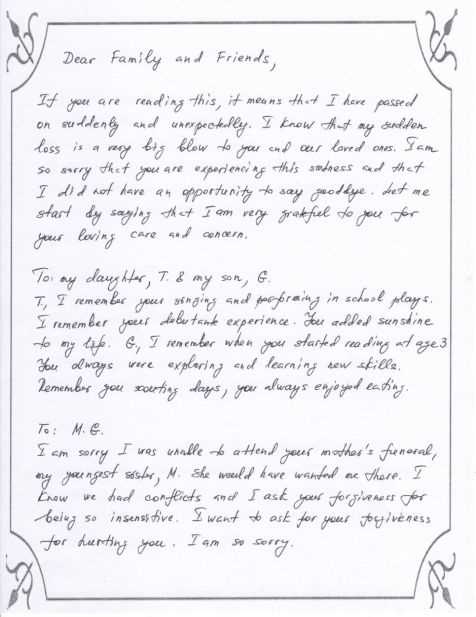 Dear Family and Friends,
If you are reading this, it means that I have passed
on suddenly and unexpectedly. I know that my sudden
loss is a very big blow to you and our loved ones. I am
so sorry that you are experiencing this sadness and that
I did not have an opportunity to say goodbye. Let me
start by saying that I am very grateful to you for
your loving care and concern.
To: my daughter, T. & my son, G.
T, I remember your singing and performing in school plays.
I remember your debutant experience. You added sunshine
to my life. G, I remember when you started reading at age 3
You always were exploring and learning new skills.
Remember you scouting days, you always enjoyed eating.
To: M. G.
I am sorry I was unable to attend your mother's funeral,
my youngest sister, M. She would have wanted me there. I
know we had conflicts and I ask your forgiveness for
being so insensitive. I want to ask for your forgiveness
for hurting you. I am so sorry.